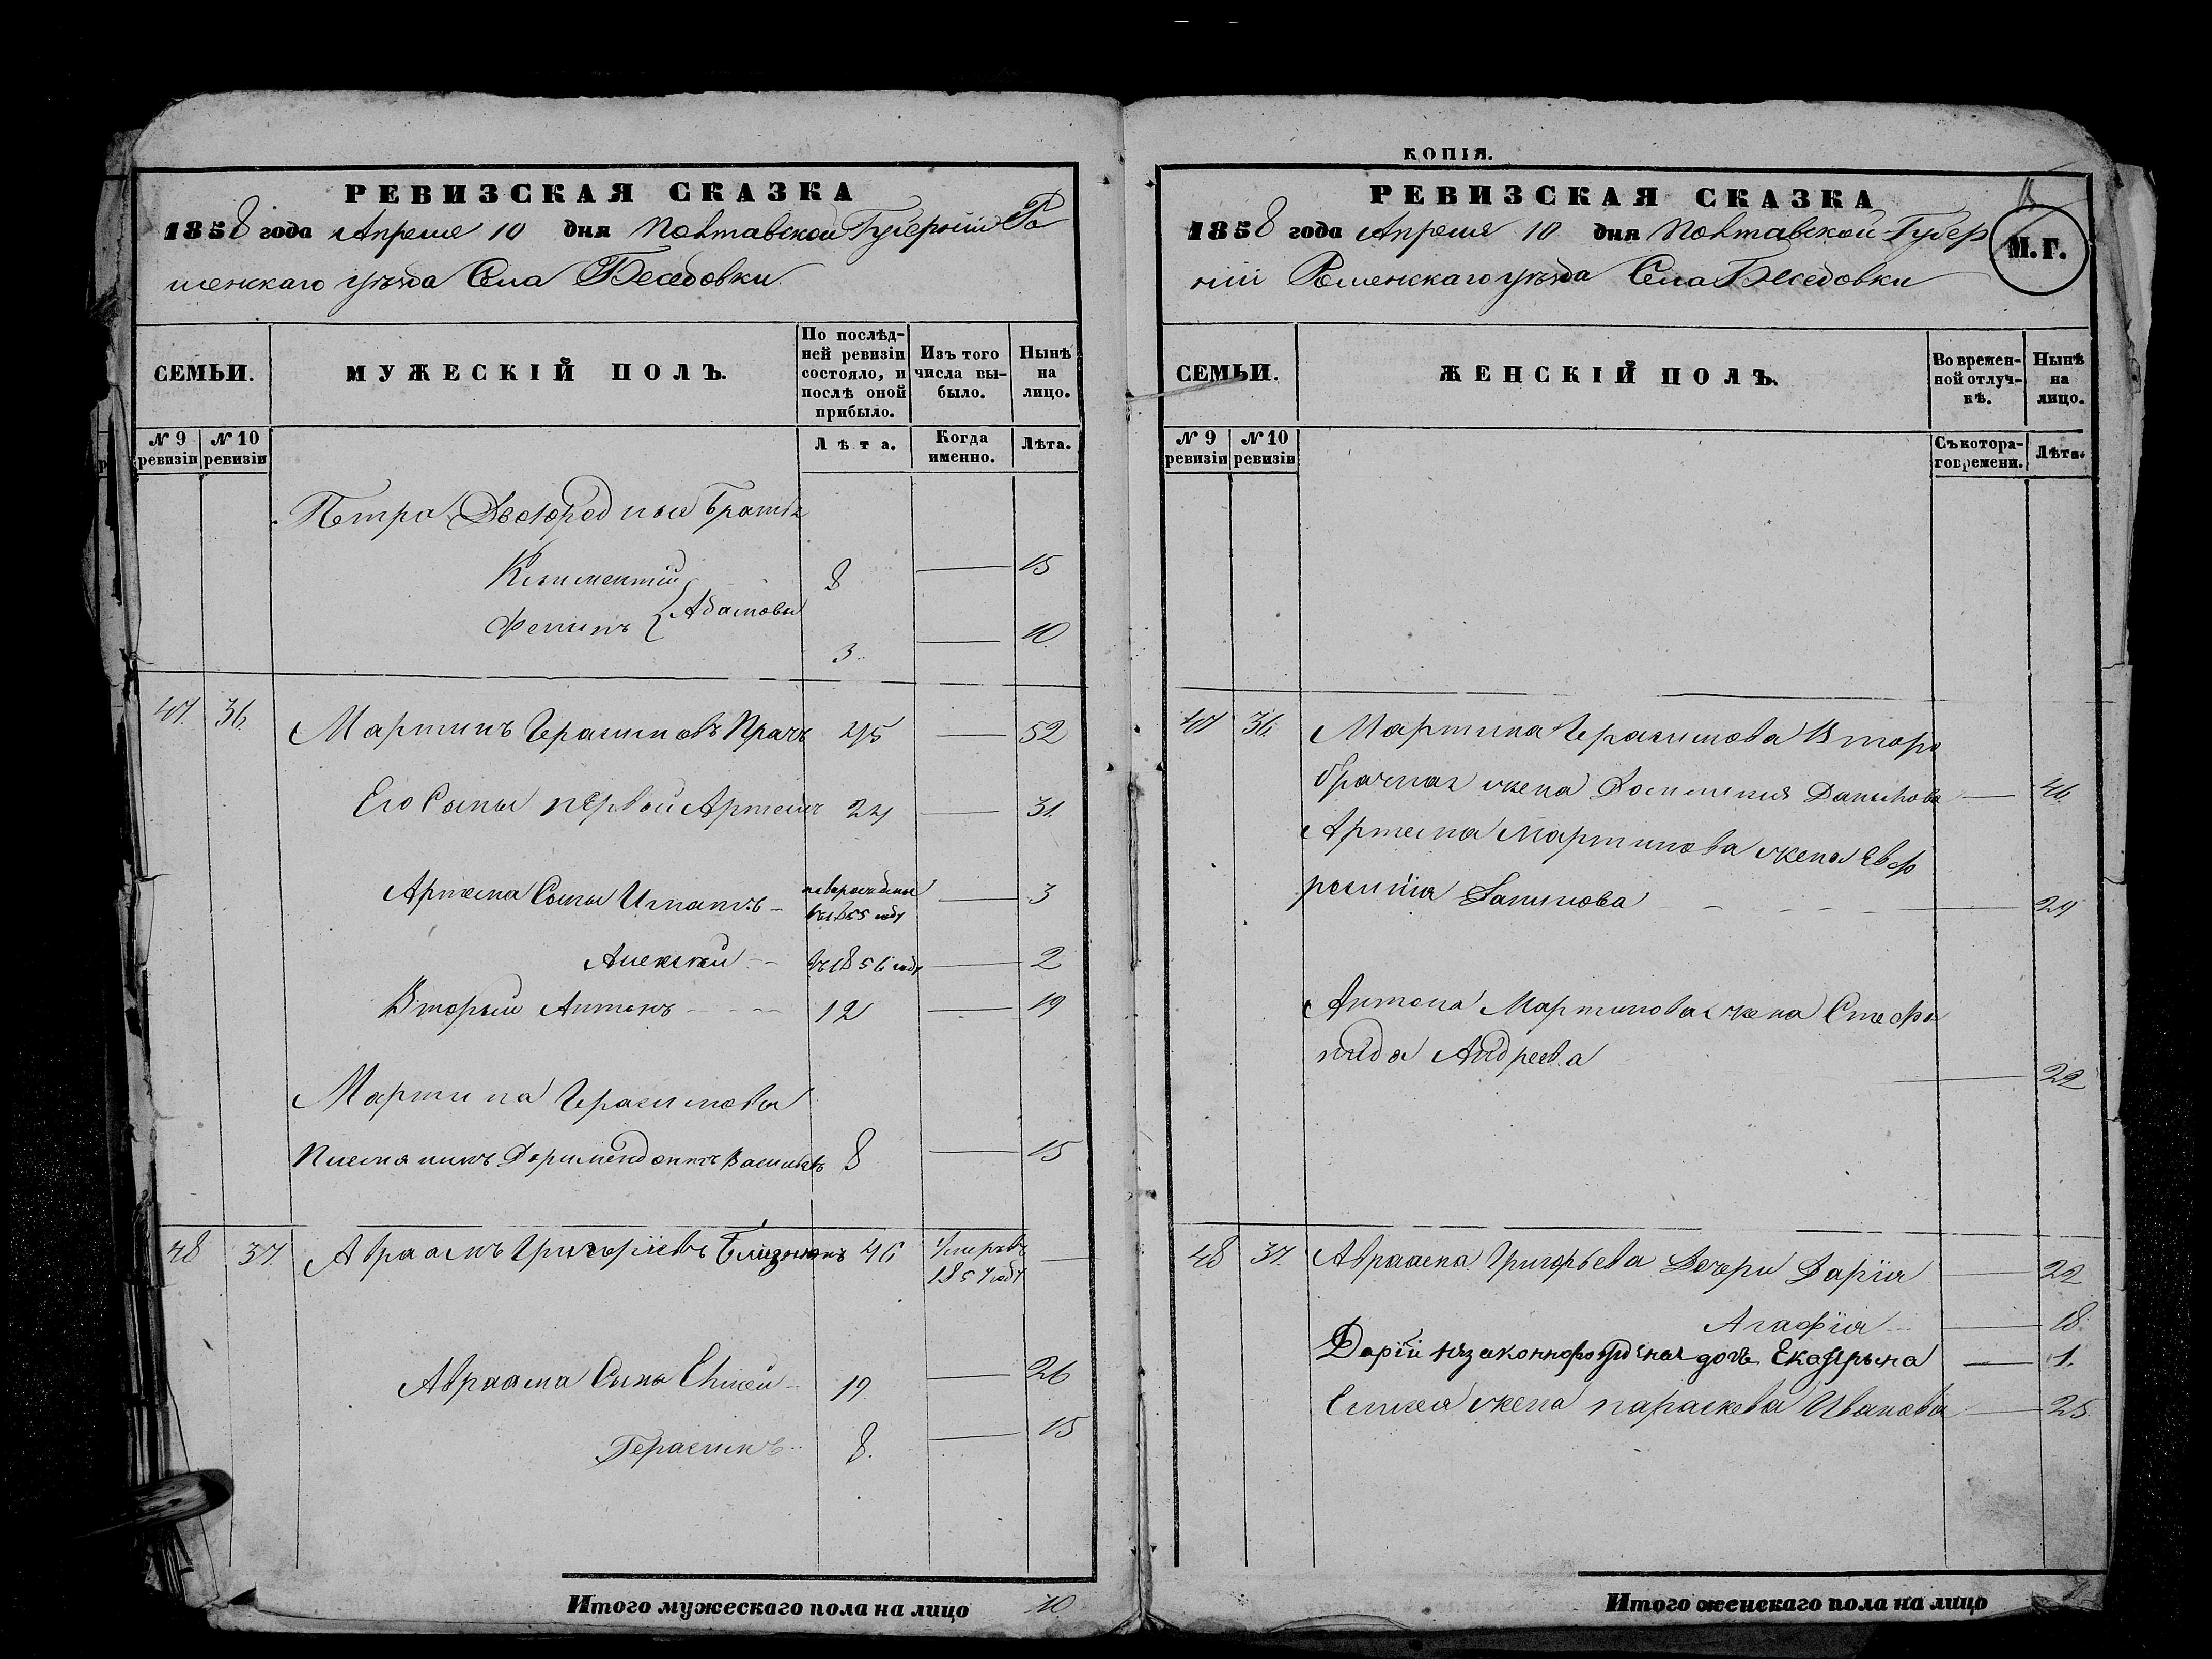 РЕВИЗСКАЯ СКАЗКА
1858 года Апреля 10 дня Полтавской Губернiи Ро
менскаго уѣзда Села Беседовки
СЕМЬИ.
МУЖЕСКIЙ ПОЛЪ.
По послѣд-
ней ревизiи
состояло, и
послѣ оной
прибыло.
Изъ того
числа вы-
было.
Нынѣ
на
лицо.
№ 9
ревизiи
№ 10
ревизiи
Лѣта.
Когда
именно.
Лѣта.
Петра Двоюродные Братья
Климентiй 8 15
Филипъ Адамовы 3 10
47. 36. Мартинъ Герасимовъ Працъ 45 52
Его Сыны первой Артемъ 24 31.
Артема Сыны Игнатъ новорожденъ
въ 1855 году 3
Алексѣй въ 1856 году 2
Вторый Антонъ 12 19
Мартина Герасимова
Племяникъ Доримендонтъ Васильевъ 8 15
48 37. Авраамъ Григорiевъ Близнюкъ 46 Умеръ въ
1857 году
Авраама Сыны Елисей 19. 26
Герасимъ 8. 15
Итого мужескаго пола на лицо 10
КОПIЯ.
РЕВИЗСКАЯ СКАЗКА
1858 года Апреля 10 дня Полтавской Губер
нiи Роменскаго уѣзда Села Беседовки
М.Г.
СЕМЬИ.
ЖЕНСКIЙ ПОЛЪ.
Во времен-
ной отлуч-
кѣ.
Нынѣ
на
лицо.
№ 9
ревизiи
№ 10
ревизiи
Съ котора-
го времени.
Лѣта.
47 36. Мартина Герасимова Второ
брачная жена Домникия Данилова 46.
Артема Мартинова жена Евф
росинiя Данилова 29
Антона Мартинова жена Стефа
нида Андреева 22
48 37. Авраама Григорьева Дочери Дарiя 22
Агафiя 18.
Дарiи незаконнорожденная дочь Екатерына 1.
Елисея жена параскева Иванова 25.
Итого женскаго пола на лицо